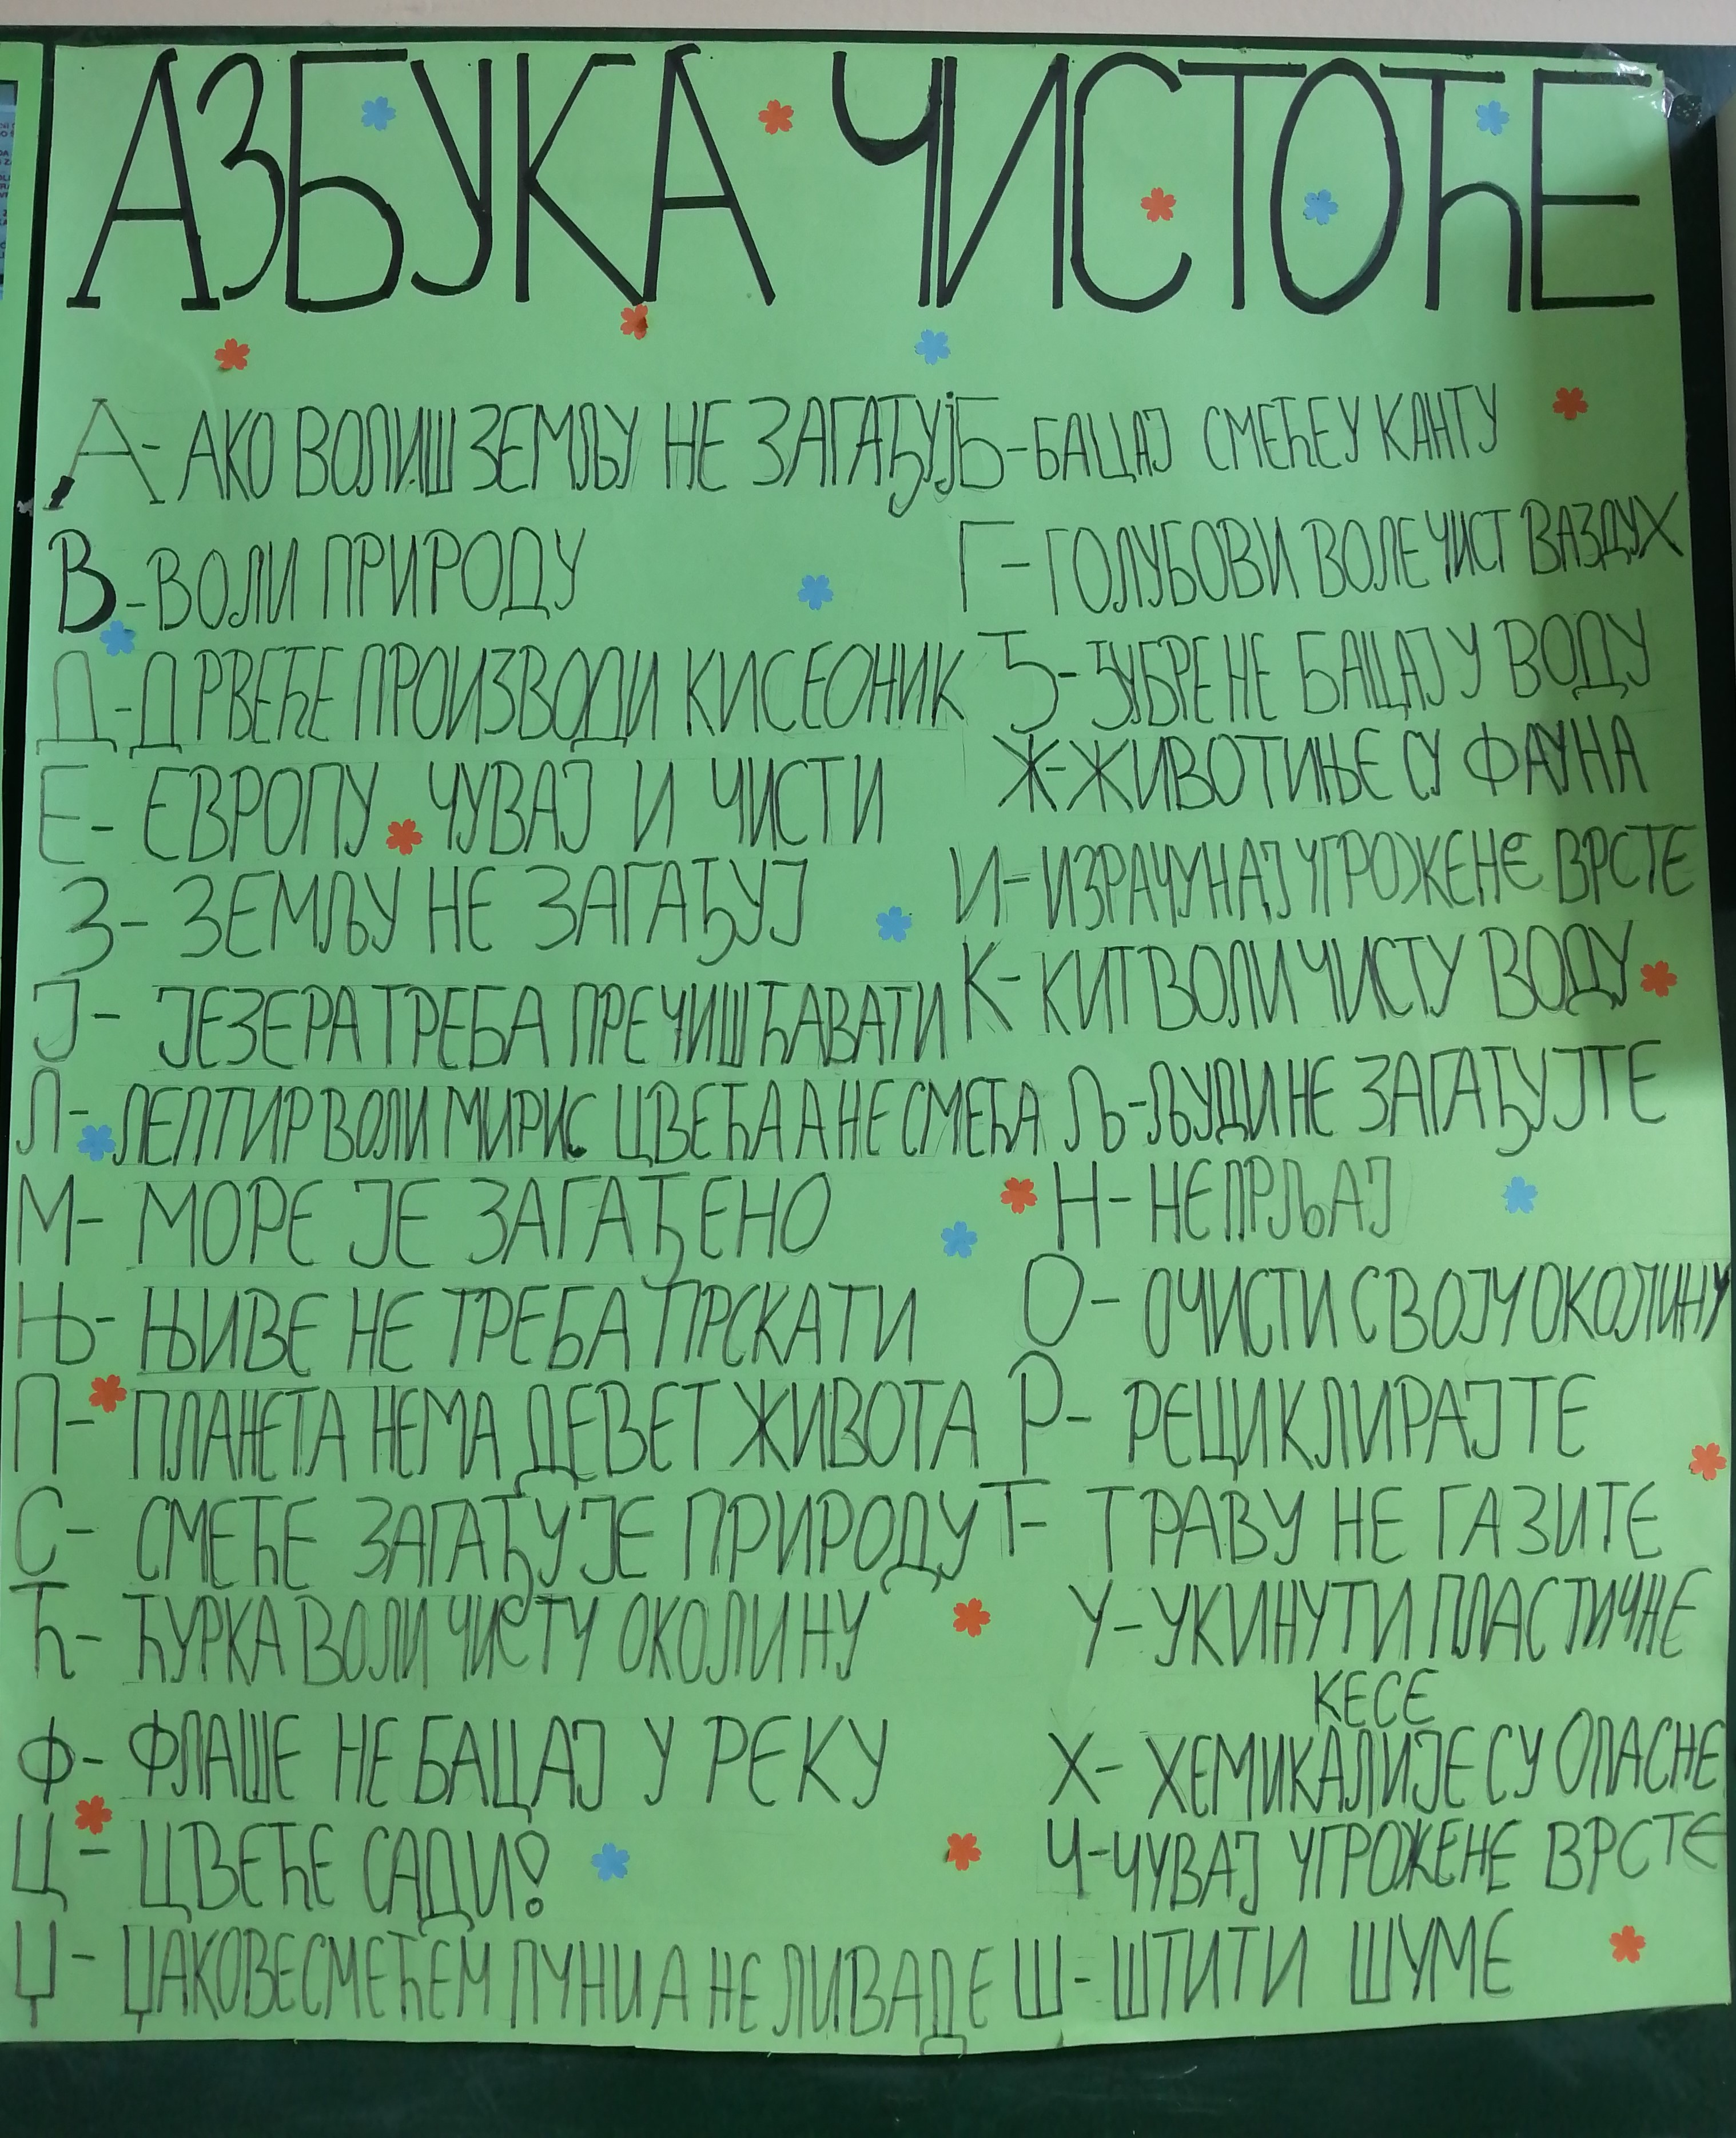 АЗБУКА ЧИСТОЋЕ
А- АКО ВОЛИШ ЗЕМЉУ НЕ ЗАГАЂУЈ Б-БАЦАЈ СМЕЋЕ У КАНТУ
В-ВОЛИ ПРИРОДУ Г-ГОЛУБОВИ ВОЛЕ ЧИСТ ВАЗДУХ
Д-ДРВЕЋЕ ПРОИЗВОДИ КИСЕОНИК Ђ-ЂУБРЕ НЕ БАЦАЈ У ВОДУ
Е- ЕВРОПУ ЧУВАЈ И ЧИСТИ Ж-ЖИВОТИЊЕ СУ ФАУНА
З- ЗЕМЉУ НЕ ЗАГАЂУЈ И-ИЗРАЧУНАЈ УГРОЖЕНЕ ВРСТЕ
Ј- ЈЕЗЕРА ТРЕБА ПРЕЧИШЋАВАТИ К-КИТ ВОЛИ ЧИСТУ ВОДУ
Л- ЛЕПТИР ВОЛИ МИРИС ЦВЕЋА А НЕ СМЕЋА Љ-ЉУДИ НЕ ЗАГАЂУЈТЕ
М- МОРЕ ЈЕ ЗАГАЂЕНО Н-НЕ ПРЉАЈ
Њ- ЊИВЕ НЕ ТРЕБА ПРСКАТИ О- ОЧИСТИ СВОЈУ ОКОЛИНУ
П- ПЛАНЕТА НЕМА ДЕВЕТ ЖИВОТА Р- РЕЦИКЛИРАЈТЕ
С- СМЕЋЕ ЗАГАЂУЈЕ ПРИРОДУ Т- ТРАВУ НЕ ГАЗИТЕ
Ћ- ЋУРКА ВОЛИ ЧИСТУ ОКОЛИНУ У-УКИНУТИ ПЛАСТИЧНЕ
КЕСЕ
Ф- ФЛАШЕ НЕ БАЦАЈ У РЕКУ Х- ХЕМИКАЛИЈЕ СУ ОПАСНЕ
Ц- ЦВЕЋЕ САДИ! Ч-ЧУВАЈ УГРОЖЕНЕ ВРСТЕ
Џ- ЏАКОВЕ СМЕЋЕМ ПУНИ А НЕ ЛИВАДЕ Ш-ШТИТИ ШУМЕ